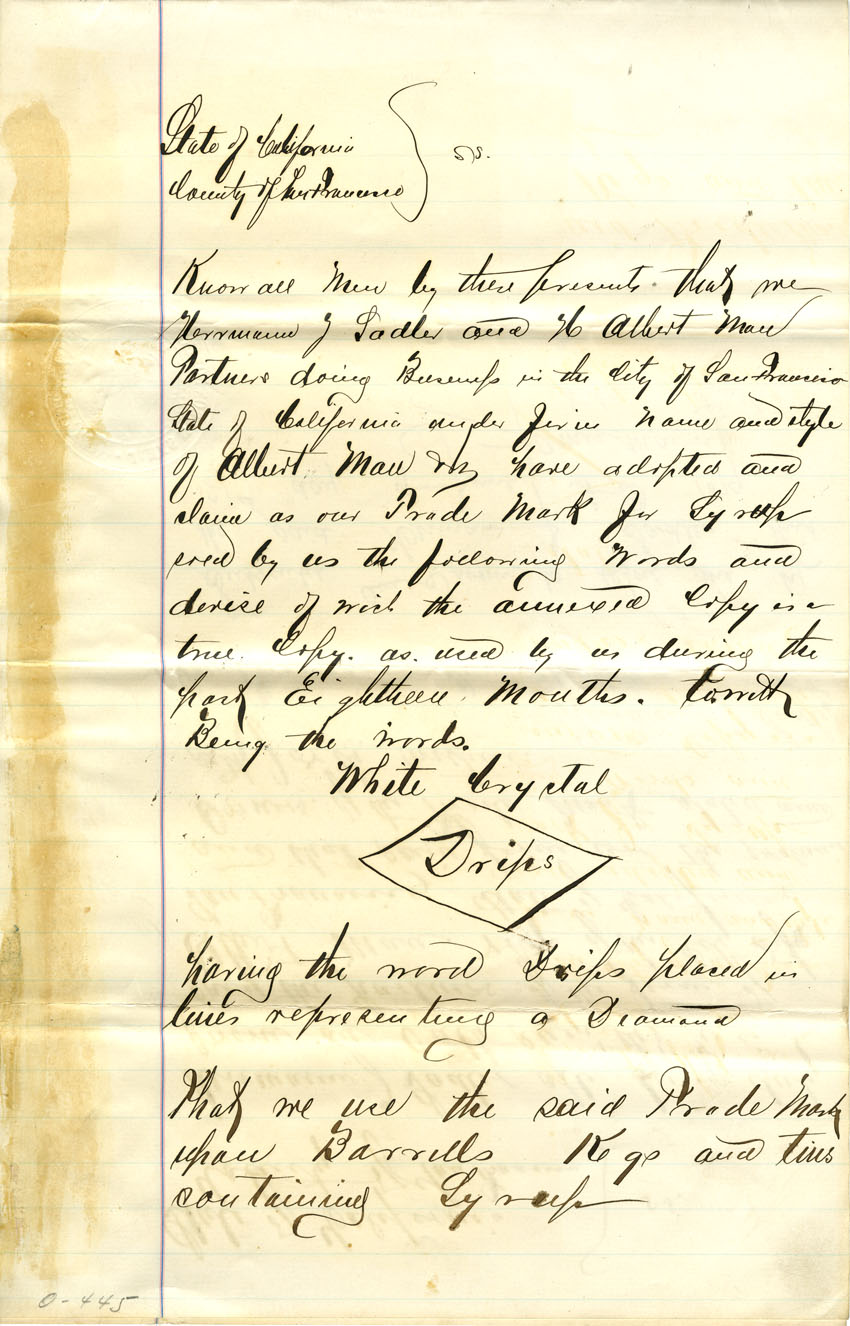 State of California
County of San Francisco } ss.
Know all Men by these presents that we
Herrmann J Sadler and H Albert Mau
Partners doing Business in the City of San Francisco
State of California under firm name and style
of Albert Mau & Co have adopted and
claim as our Trade Mark for Syrup
used by us the following Words and
devise of wich the annexed Copy is a
true Copy. as. used by us during the
past Eighteen Months. towitt
Being the words.
White Crystal
Drips
having the word Drips placed in
lines representing a Diamond
That we use the said Trade Mark
upon Barrells Kegs and tins
containing Syrup
0-445